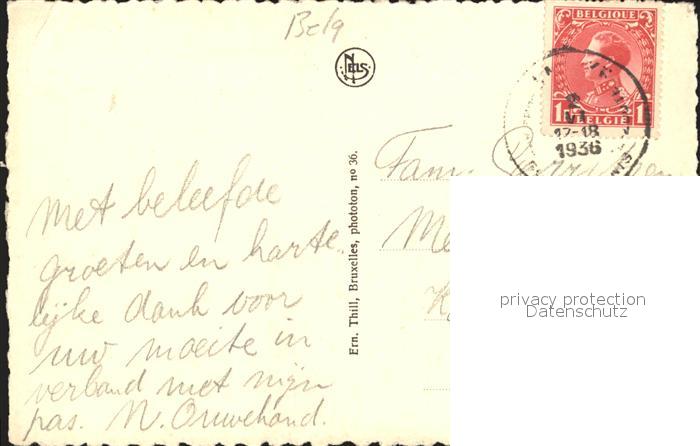 Belg
NELS
BELGIQUE
1 BELGIË 1
VI
17-18
1936
Met beleefde
groeten en harte
lijke dank voor
uw moeite in
verband met mijn
pas. N. Ouwehand.
Ern. Thill, Bruxelles, phototon, nº 36.
Fam.
privacy protection
Datenschutz